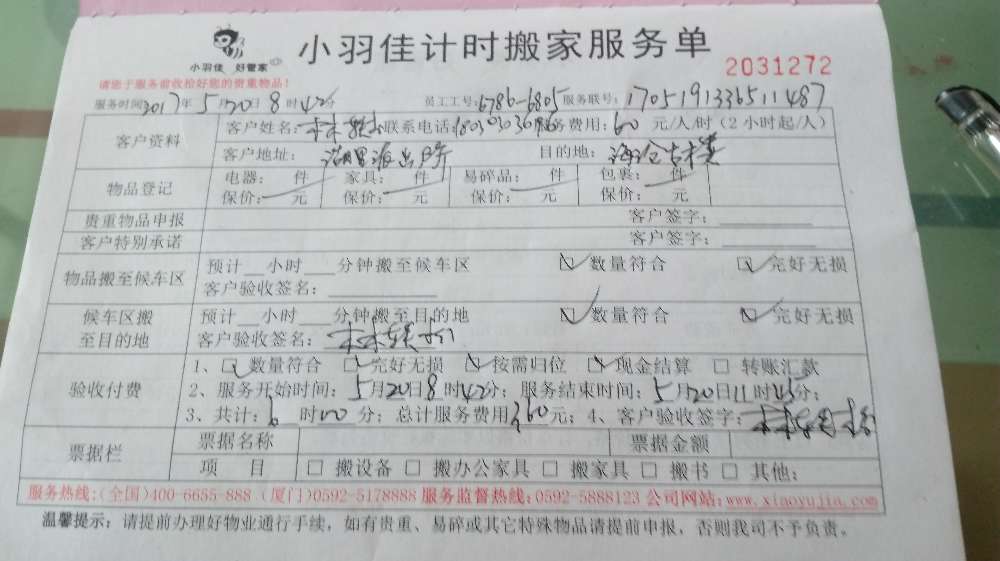 小羽佳 好管家
小羽佳计时搬家服务单
2031272
请您于服务前收检好您的贵重物品!
服务时间2017年5月20日8时42分 员工工号:6786-6805 服务联号:1705191336511487
客户资料 客户姓名: 联系电话: 服务费用:60元/人/时(2小时起/人)
客户地址: 派出所 目的地:
物品登记 电器: 件 家具: 件 易碎品: 件 包裹: 件
保价: 元 保价: 元 保价: 元 保价: 元
贵重物品申报 客户签字:
客户特别承诺 客户签字:
物品搬至候车区 预计__小时___分钟搬至候车区 ☑数量符合 ☑完好无损
客户验收签名:
候车区搬至目的地 预计__小时___分钟搬至目的地 ☑数量符合 ☑完好无损
客户验收签名:
验收付费 1、☑数量符合 ☑完好无损 ☑按需归位 ☑现金结算 □转账汇款
2、服务开始时间:5月20日8时42分; 服务结束时间:5月20日11时45分;
3、共计:6时00分; 总计服务费用360元; 4、客户验收签字:
票据栏 票据名称 票据金额
项 目 □搬设备 □搬办公家具 □搬家具 □搬书 □其他:
服务热线:(全国)400-6655-888 (厦门)0592-5178888 服务监督热线:0592-5888123 公司网站:www.xiaoyujia.com
温馨提示:请提前办理好物业通行手续,如有贵重、易碎或其它特殊物品请提前申报,否则我司不予负责。